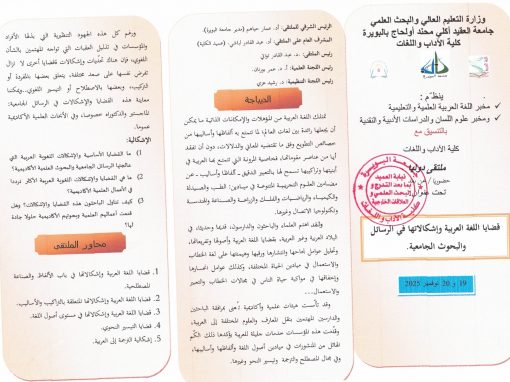 وزارة التعليم العالي والبحث العلمي
جامعة العقيد أكلي محند أولحاج بالبويرة
كلية الآداب واللغات
ينظم:
مخبر اللغة العربية العلمية والتعليمية
ومخبر علوم اللسان والدراسات الأدبية والنقدية
بالتنسيق مع
كلية الآداب واللغات
ملتقى دوليا
حضوريا
تحت عنوان
قضايا اللغة العربية وإشكالاتها في الرسائل
والبحوث الجامعية.
19 و 20 نوفمبر 2025
نيابة العميد
لما بعد التدرج و
البحث العلمي و
العلاقات الخارجية
كلية الآداب واللغات
الرئيس الشرفي للملتقى: أ.د. عمار حياهم (مدير جامعة البويرة).
المشرف العام على الملتقى: أ.د. عبد القادر لباشي (عميد الكلية)
رئيس الملتقى: د. عبد القادر تواتي
رئيس اللجنة العلمية: أ.د. عمر بورنان.
رئيس اللجنة التنظيمية: د. رشيد عزي
الديباجة
تمتلك اللغة العربية من المؤهلات والإمكانات الذاتية ما يمكن
أن يجعلها رائدة بين لغات العالم؛ لما تتمتع به ألفاظها وأساليبها من
خصائص التطويع وفق ما تقتضيه المعاني والدلالات، دون أن تفقد
أيا من عناصر مقوماتها، فخاصية المرونة التي تتمتع بها العربية في
أبنيتها وتراكيبها تسمح لها بالتعبير الدقيق ـ ألفاظا وأساليب ـ عن
مضامين العلوم التجريبية المتنوعة في ميادين: الطب والعلوم
والكيمياء والرياضيات والفلك والرياضة والصناعة والاقتصاد
وتكنولوجيا الاتصال وغيرها.
ولقد اهتم العلماء والباحثون والدارسون، قديما وحديثا، في
البلاد العربية وعبر العربية، بقضايا اللغة العربية وأصولها وتفريعاتها،
وتحليل عوامل نجاحها وانتشارها ورقيها وهيمنتها على لغة الخطاب
والاستعمال في ميادين الحياة المختلفة، وكذلك عوامل انحسارها
وإخفاقها في مواكبة حياة الناس في مجالات الخطاب والتعبير
والاستعمال...
وقد تأسست هيئات علمية وأكاديمية تُعنى بمرافقة الباحثين
والدارسين المهتمين بنقل المعارف والعلوم المختلفة إلى العربية،
وقدمت هذه المؤسسات خدمات جليلة للعربية يؤكدها ذلك الكم
الهائل من المنشورات في ميادين أصول اللغة وألفاظها وأساليبها،
وفي مجال المصطلح والترجمة وتيسير النحو وغيرها.
ورغم كل هذه الجهود التنظيرية التي بذلها الأفراد
والمؤسسات في تذليل العقبات التي تواجه المهتمين بالشأن
اللغوي، فإن هناك تحديات وإشكالات وقضايا أخرى لا تزال
تفرض نفسها على صعد مختلفة، يتعلق بعضها بالمفردة أو
التركيب، وبعضها بالاصطلاح أو التيسير اللغوي، ويمكننا
معاينة هذه القضايا والإشكالات في الرسائل الجامعية:
الماجستير والدكتوراه خصوصا، وفي الأبحاث العلمية الأكاديمية
عموما.
الإشكالية:
1) ما القضايا الأساسية والإشكالات اللغوية العربية التي
عالجتها الرسائل الجامعية والبحوث العلمية الأكاديمية؟
2) ما هي القضايا والإشكالات اللغوية العربية الأكثر ترددا
في الأعمال العلمية الأكاديمية؟
3) كيف تناول الباحثون هذه القضايا والإشكالات؟ وهل
قدمت أعمالهم العلمية وبحوثهم الأكاديمية حلولا جادة
لها؟
محاور الملتقى
1. قضايا اللغة العربية وإشكالاتها في باب الألفاظ والصناعة
المصطلحية.
2. قضايا اللغة العربية وإشكالاتها المتعلقة بالتراكيب والأساليب.
3. قضايا اللغة العربية وإشكالاتها في مستوى أصول اللغة.
4. قضايا التيسير النحوي.
5. إشكالية الترجمة إلى العربية.